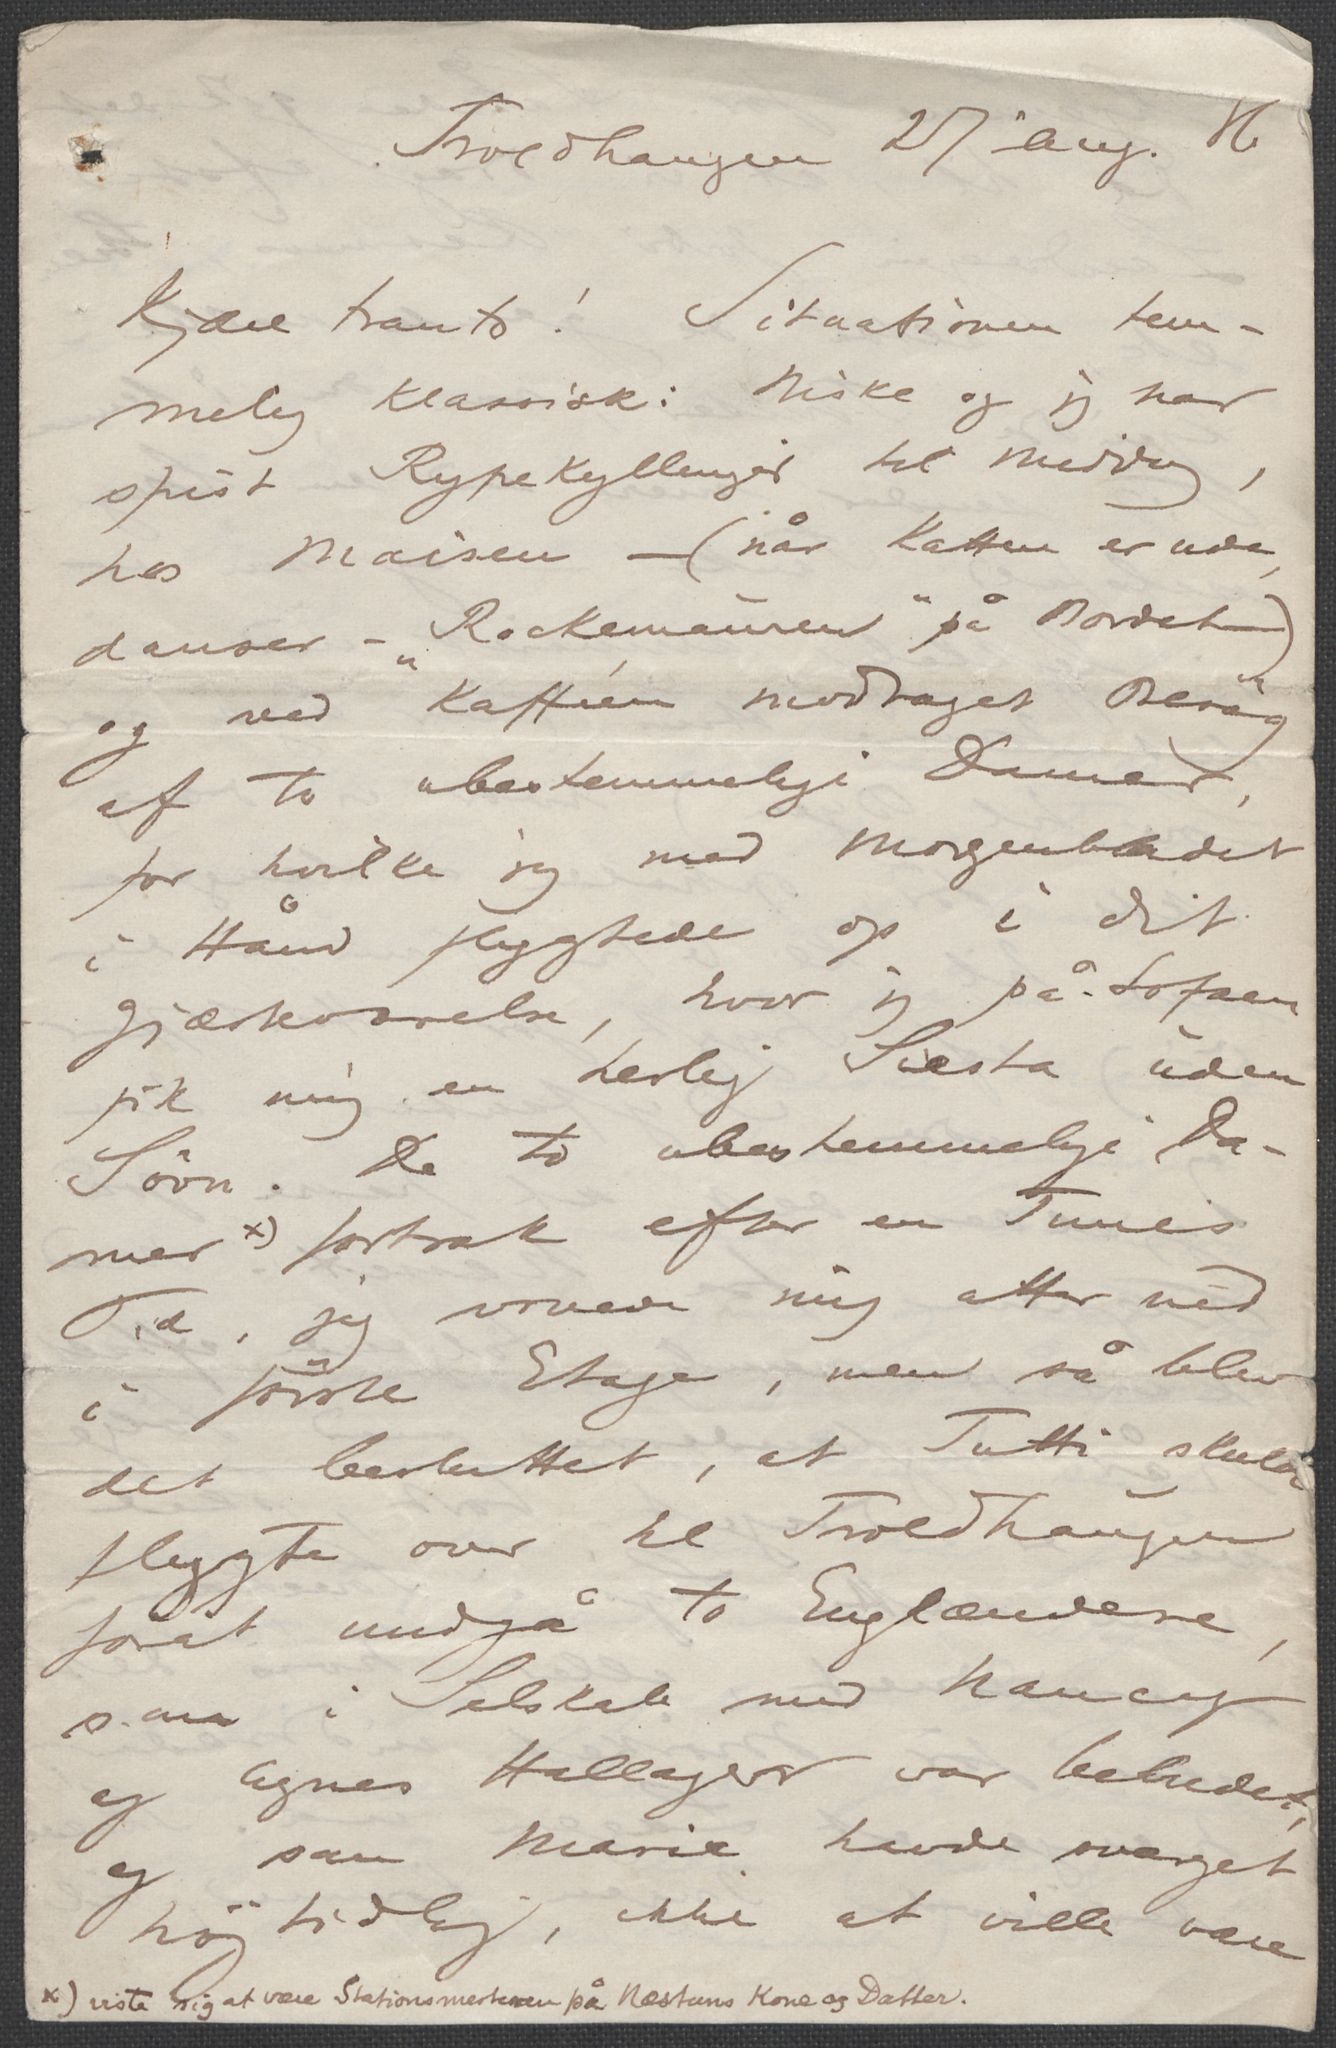 Troldhaugen 27 Aug. 86
Kjære Frants! Situationen tem-
melig klassisk: Niske og jeg har
spist Rypekyllinger til Middag,
hos Maisen – (når Katten er ude,
danser – „Rockemausen“ på Bordet)
og ved Kaffeen modtaget Besøg
af to ubestemmelige Damer,
for hvilke jeg med Morgenbladet
i Hånd flygtede op i dit
Gjæsteværelse, hvor jeg på Sofaen
fik mig en herlig Siesta uden
Søvn. De to ubestemmelige Da-
mer x) fortrak efter en Times
Tid, jeg vovede mig atter ned
i første Etage, men så blev
det besluttet, at Tutti skulde
flygte over til Troldhaugen
forat undgå to Englændere,
som i Selskab med Nancy
og Agnes Hallager var bebudet,
og som Marie havde svœrget
højtidlig, ikke at ville være
x) viste sig at være Stationsmesteren på Nestuns Kone og Datter.